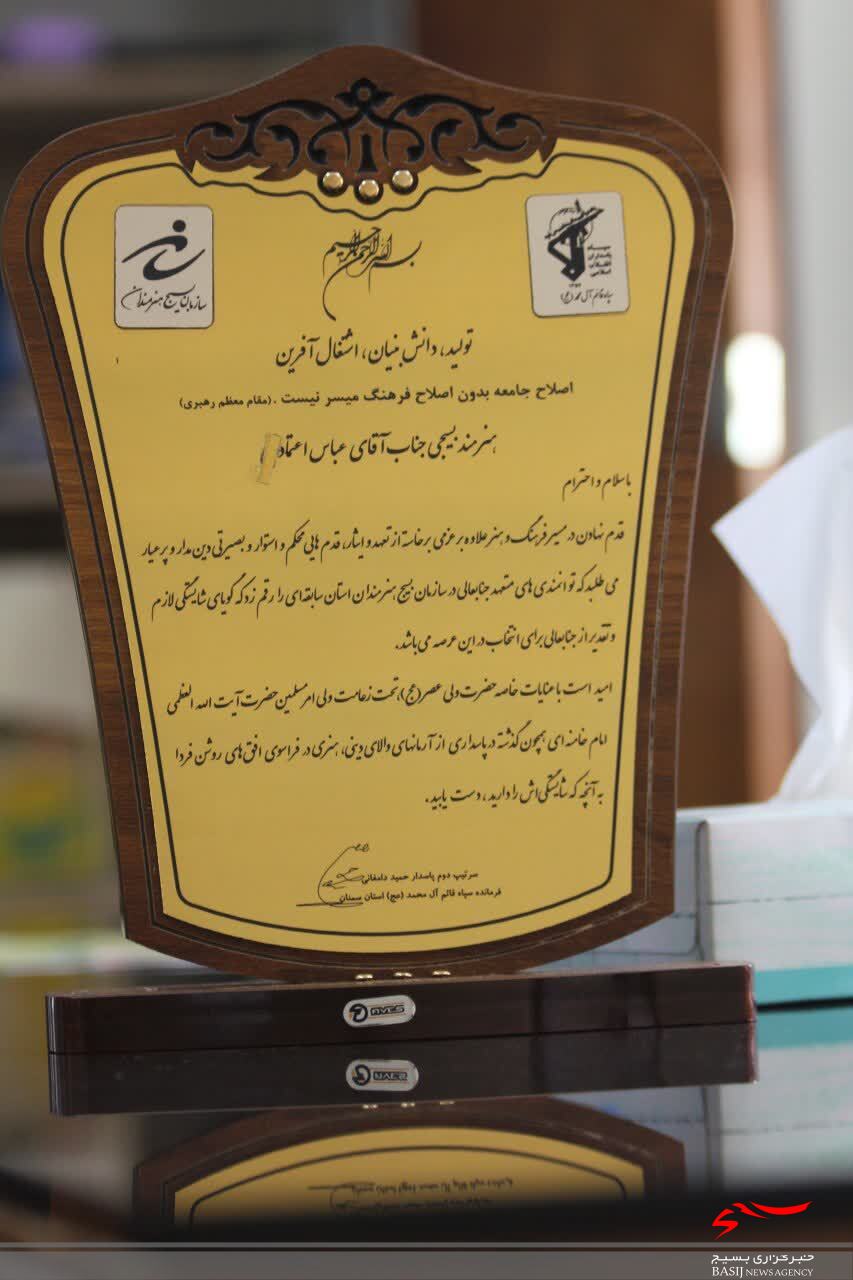 سازمان بسیج هنرمندان
سپاه
پاسداران
انقلاب
اسلامی
سپاه قائم آل محمد (عج)
بسم الله الرحمن الرحیم
تولید، دانش بنیان، اشتغال آفرین
اصلاح جامعه بدون اصلاح فرهنگ میسر نیست . (مقام معظم رهبری)
هنرمند بسیجی جناب آقای عباس اعتماد
با سلام و احترام
قدم نهادن در مسیر فرهنگ و هنر علاوه بر عزمی برخاسته از تعهد و ایثار، قدم هایی محکم و استوار و بصیرتی دین مدار و پر عیار
می طلبد که توانمندی های متعهد جنابعالی در سازمان بسیج هنرمندان استان سابقه ای را رقم زد که گویای شایستگی لازم
و تقدیر از جنابعالی برای انتخاب در این عرصه می باشد.
امید است با عنایات خاصه حضرت ولی عصر (عج)، تحت زعامت ولی امر مسلمین حضرت آیت الله العظمی
امام خامنه ای همچون گذشته در پاسداری از آرمانهای والای دینی، هنری در فراسوی افق های روشن فردا
به آنچه که شایستگی اش را دارید، دست یابید.
سرتیپ دوم پاسدار حمید دامغانی
فرمانده سپاه قائم آل محمد (عج) استان سمنان
بسیج
خبرگزاری بسیج
BASIJ NEWS AGENCY